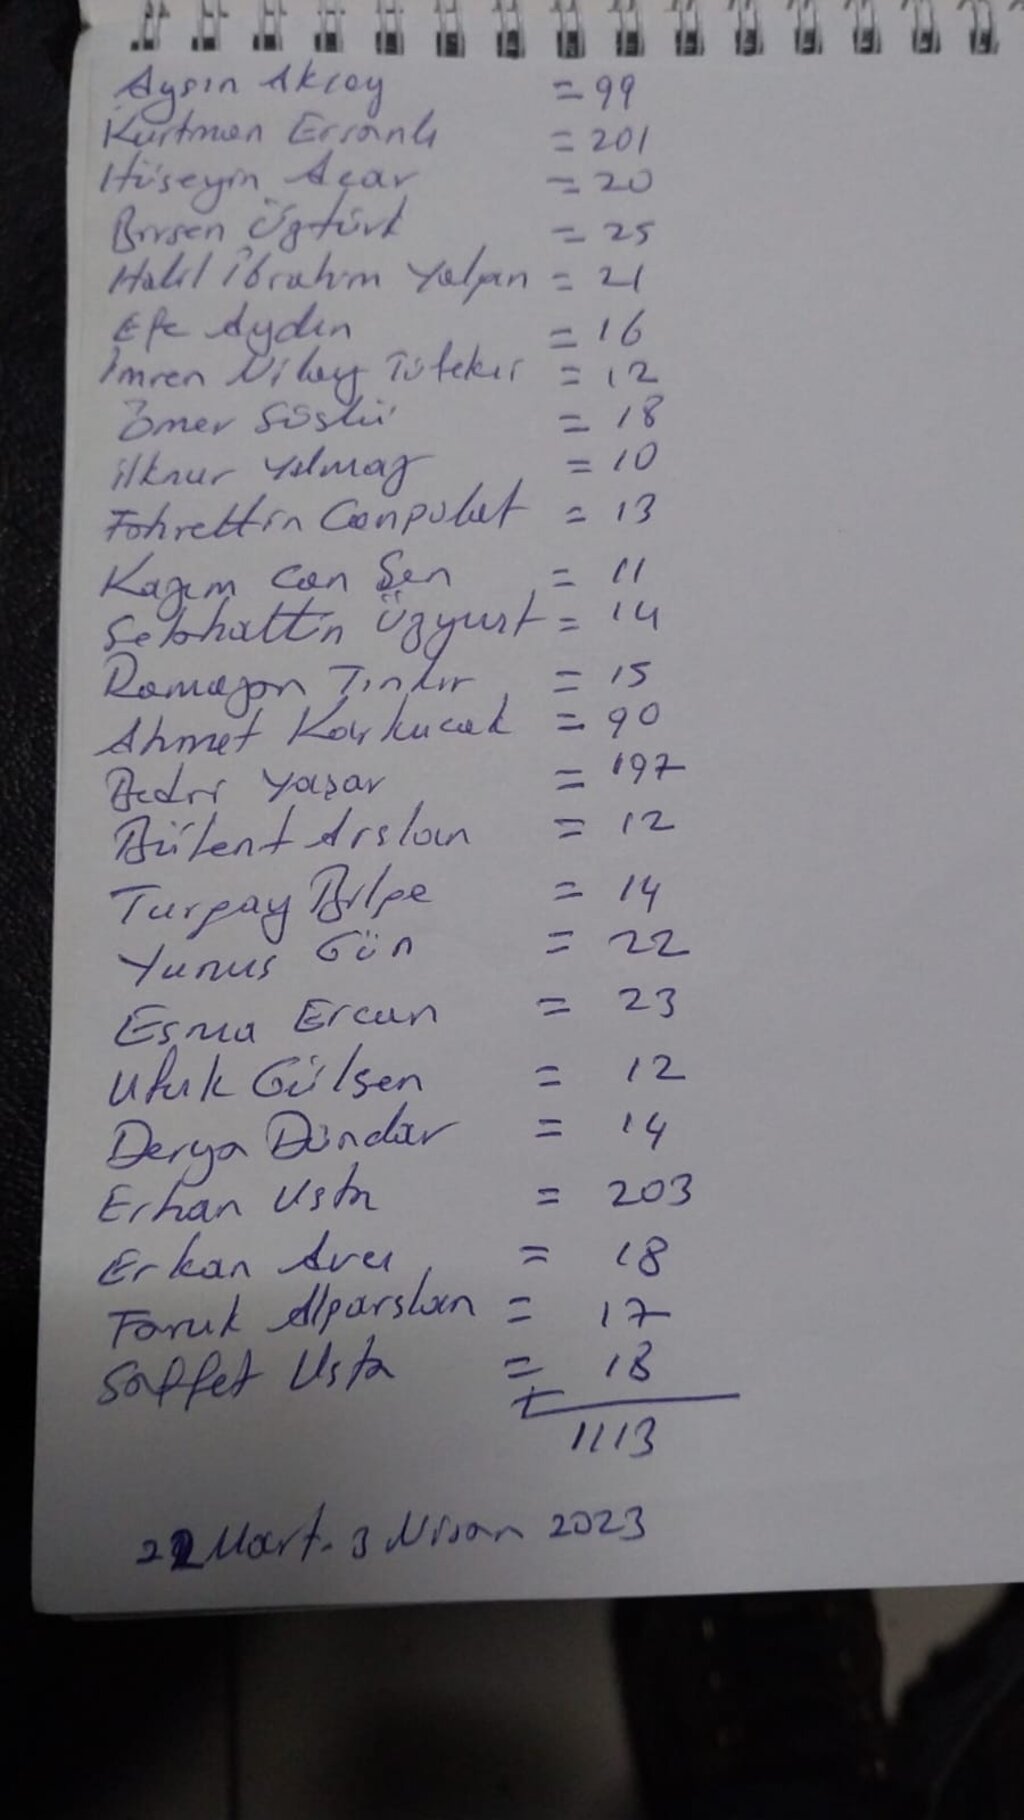 Aysın Aksoy = 99
Kurtman Ersanlı = 201
Hüseyin Acar = 20
Birsen Öztürk = 25
Halil İbrahim Yalçın = 21
Efe Aydın = 16
İmren Nilay Tüfekir = 12
Ömer Süslü = 18
İlknur Yılmaz = 10
Fahrettin Canpolat = 13
Kazım Can Şen = 11
Sebahattin Özyurt = 14
Ramazan Tındır = 15
Ahmet Karkucak = 90
Bedri Yaşar = 197
Bülent Arslan = 12
Turgay Bilge = 14
Yunus Gün = 22
Esma Ercan = 23
Ufuk Gülsen = 12
Derya Dündar = 14
Erhan Usta = 203
Erkan Avcı = 18
Faruk Alparslan = 17
Saffet Usta = 18
+
1113
22 Mart - 3 Nisan 2023